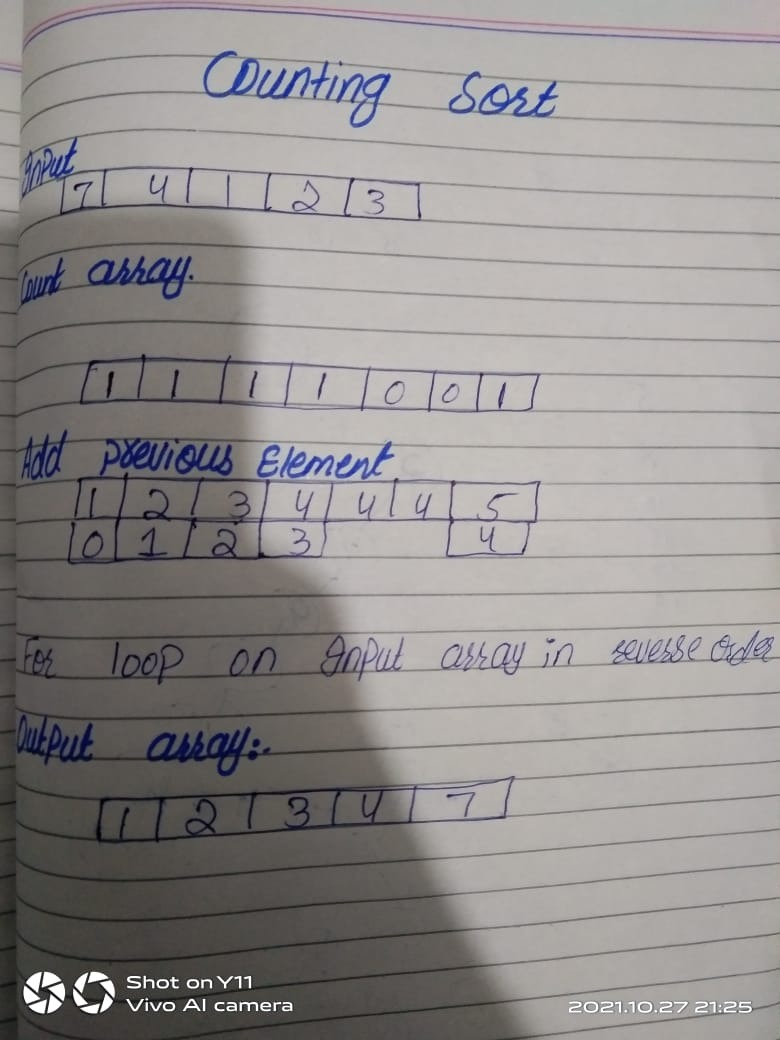 Counting Sort
Input
7 4 1 2 3
Count array.
1 1 1 1 0 0 1
Add previous Element
1 2 3 4 4 4 5
0 1 2 3 4
For loop on Input array in reverse order
Output array:-
1 2 3 4 7
Shot on Y11
Vivo AI camera
2021.10.27 21:25